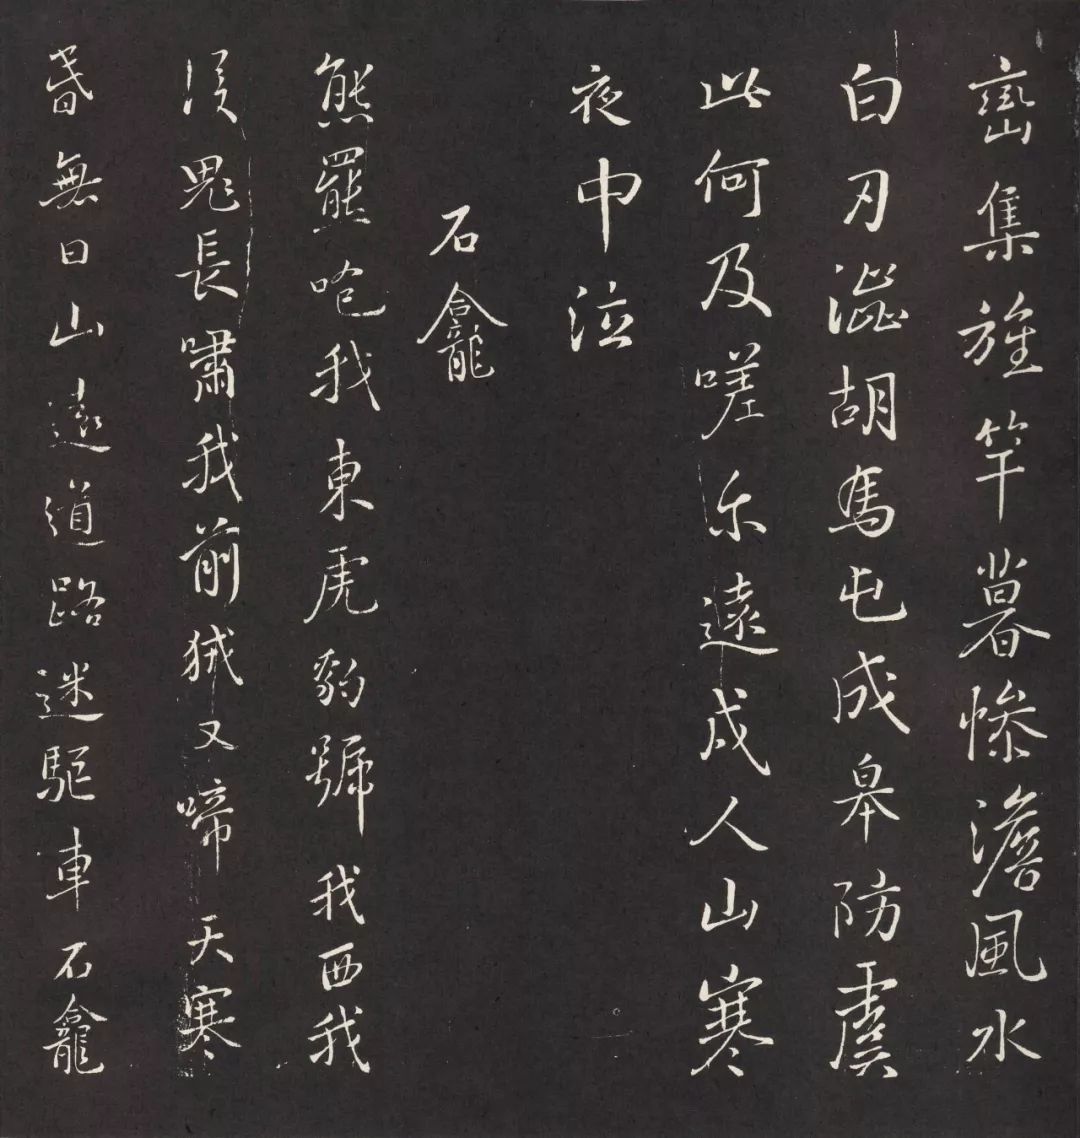 巒集旌竿暮慘澹風水
白刃澁胡馬屯成皋防虞
此何及嗟尒遠戍人山寒
夜中泣
石龕
熊羆咆我東虎豹號我西我
後鬼長嘯我前狨又啼天寒
昏無日山遠道路迷驅車石龕